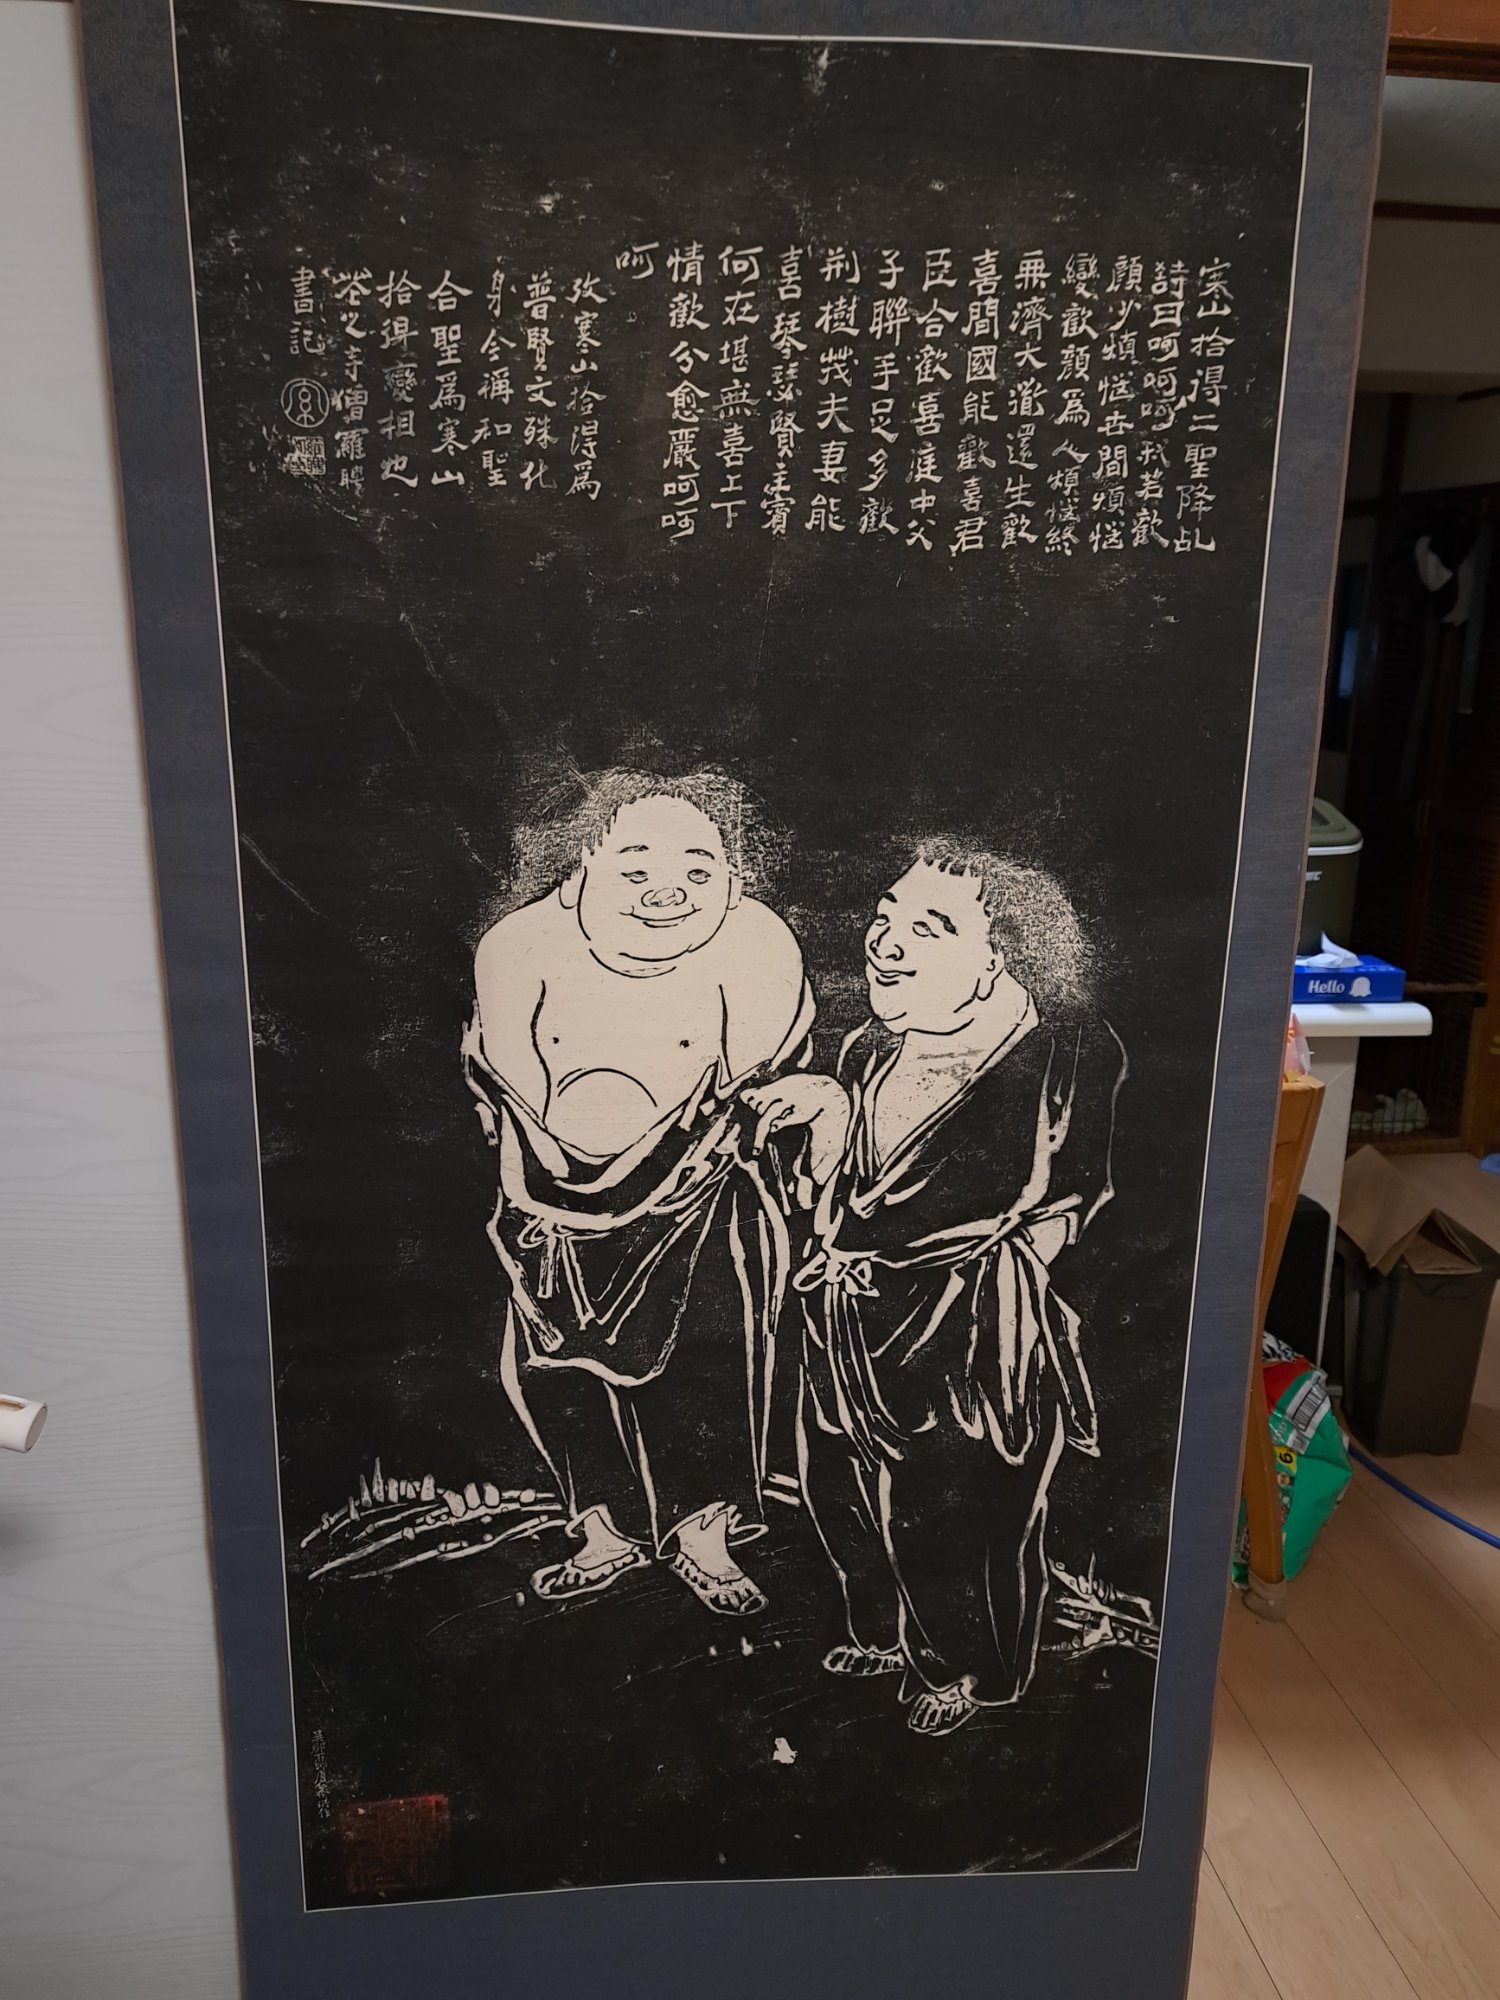 寒山拾得二聖降乩
詩曰呵呵呵我若歡
顏少煩惱世間煩惱
變歡顏爲人煩惱終
無濟大道還生歡
喜間國能歡喜君
臣合歡喜庭中父
子聯手足多歡
荆樹茂夫妻能
喜琴瑟賢主賓
何在堪無喜上下
情歡分愈嚴呵呵
呵
攷寒山拾得爲
普賢文殊化
身今稱和聖
合聖爲寒山
拾得變相也
花之寺僧羅聘
書記
Hello